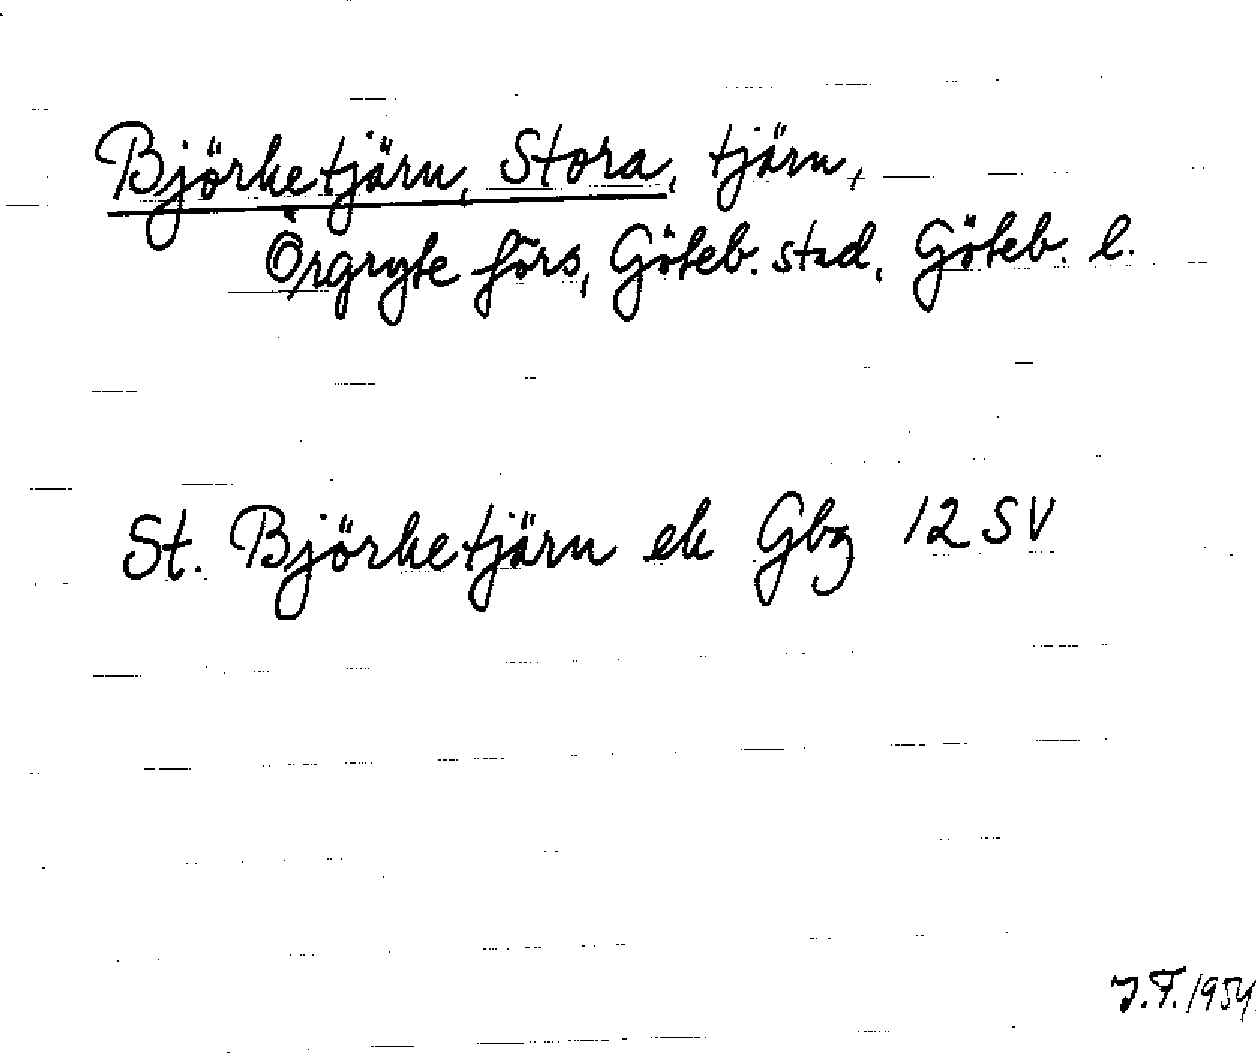 Björketjärn, Stora, tjärn,
Örgryte förs, Göteb. stad, Göteb. l.
St. Björketjärn ek Gbg 12 SV
J.F. 1954